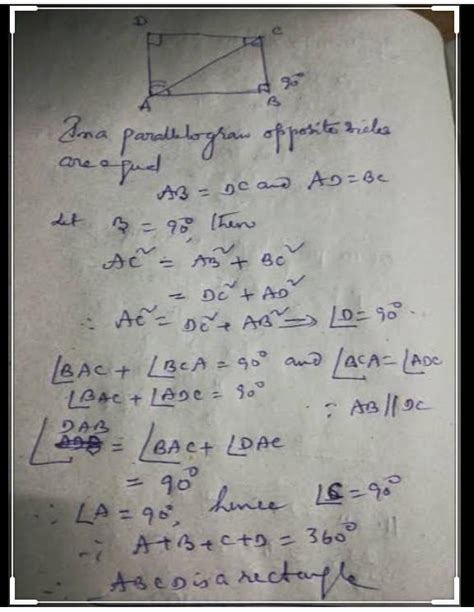 D C
A B 90°
In a parallelogram opposite sides
are equal
AB = DC and AD = BC
Let B = 90°, then
AC² = AB² + BC²
= DC² + AD²
∴ AC² = DC² + AB² ⟹ ∠D = 90°.
∠BAC + ∠BCA = 90° and ∠BCA = ∠ADC
∠BAC + ∠ADC = 90° ∵ AB || DC
∠DAB = ∠BAC + ∠DAC
= 90°
∴ ∠A = 90°, hence ∠C = 90°
∵ A + B + C + D = 360°
∴ ABCD is a rectangle